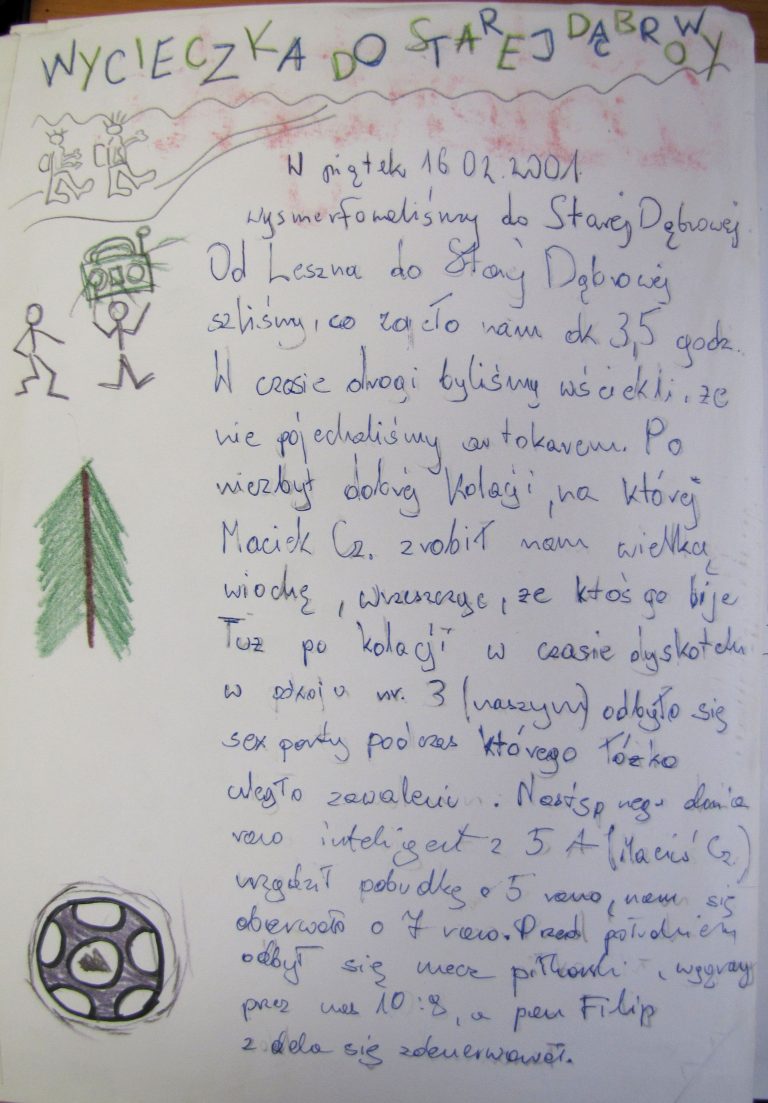 WYCIECZKA DO STAREJ DĄBROWY
W piątek 16 02.2001
wysmerfowaliśmy do Starej Dąbrowej
Od Leszna do Starej Dąbrowej
szliśmy, co zajęło nam ok 3,5 godz.
W czasie drogi byliśmy wściekli, że
nie pojechaliśmy autokarem. Po
niezbyt dobrej kolacji, na której
Maciek Cz. zrobił nam wielką
wiochę, wrzeszcząc, że ktoś go bije
Tuż po kolacji w czasie dyskoteki
w pokoju nr. 3 (naszym) odbyło się
sex party podczas którego łóżko
uległo zawaleniu. Następnego dnia
rano inteligent z 5 A (Maciuś Cz.)
urządził pobudkę o 5 rano, nam się
oberwało o 7 rano. Przed południem
odbył się mecz piłkarski, wygrany
przez nas 10:8, a pan Filip
z deka się zdenerwował.